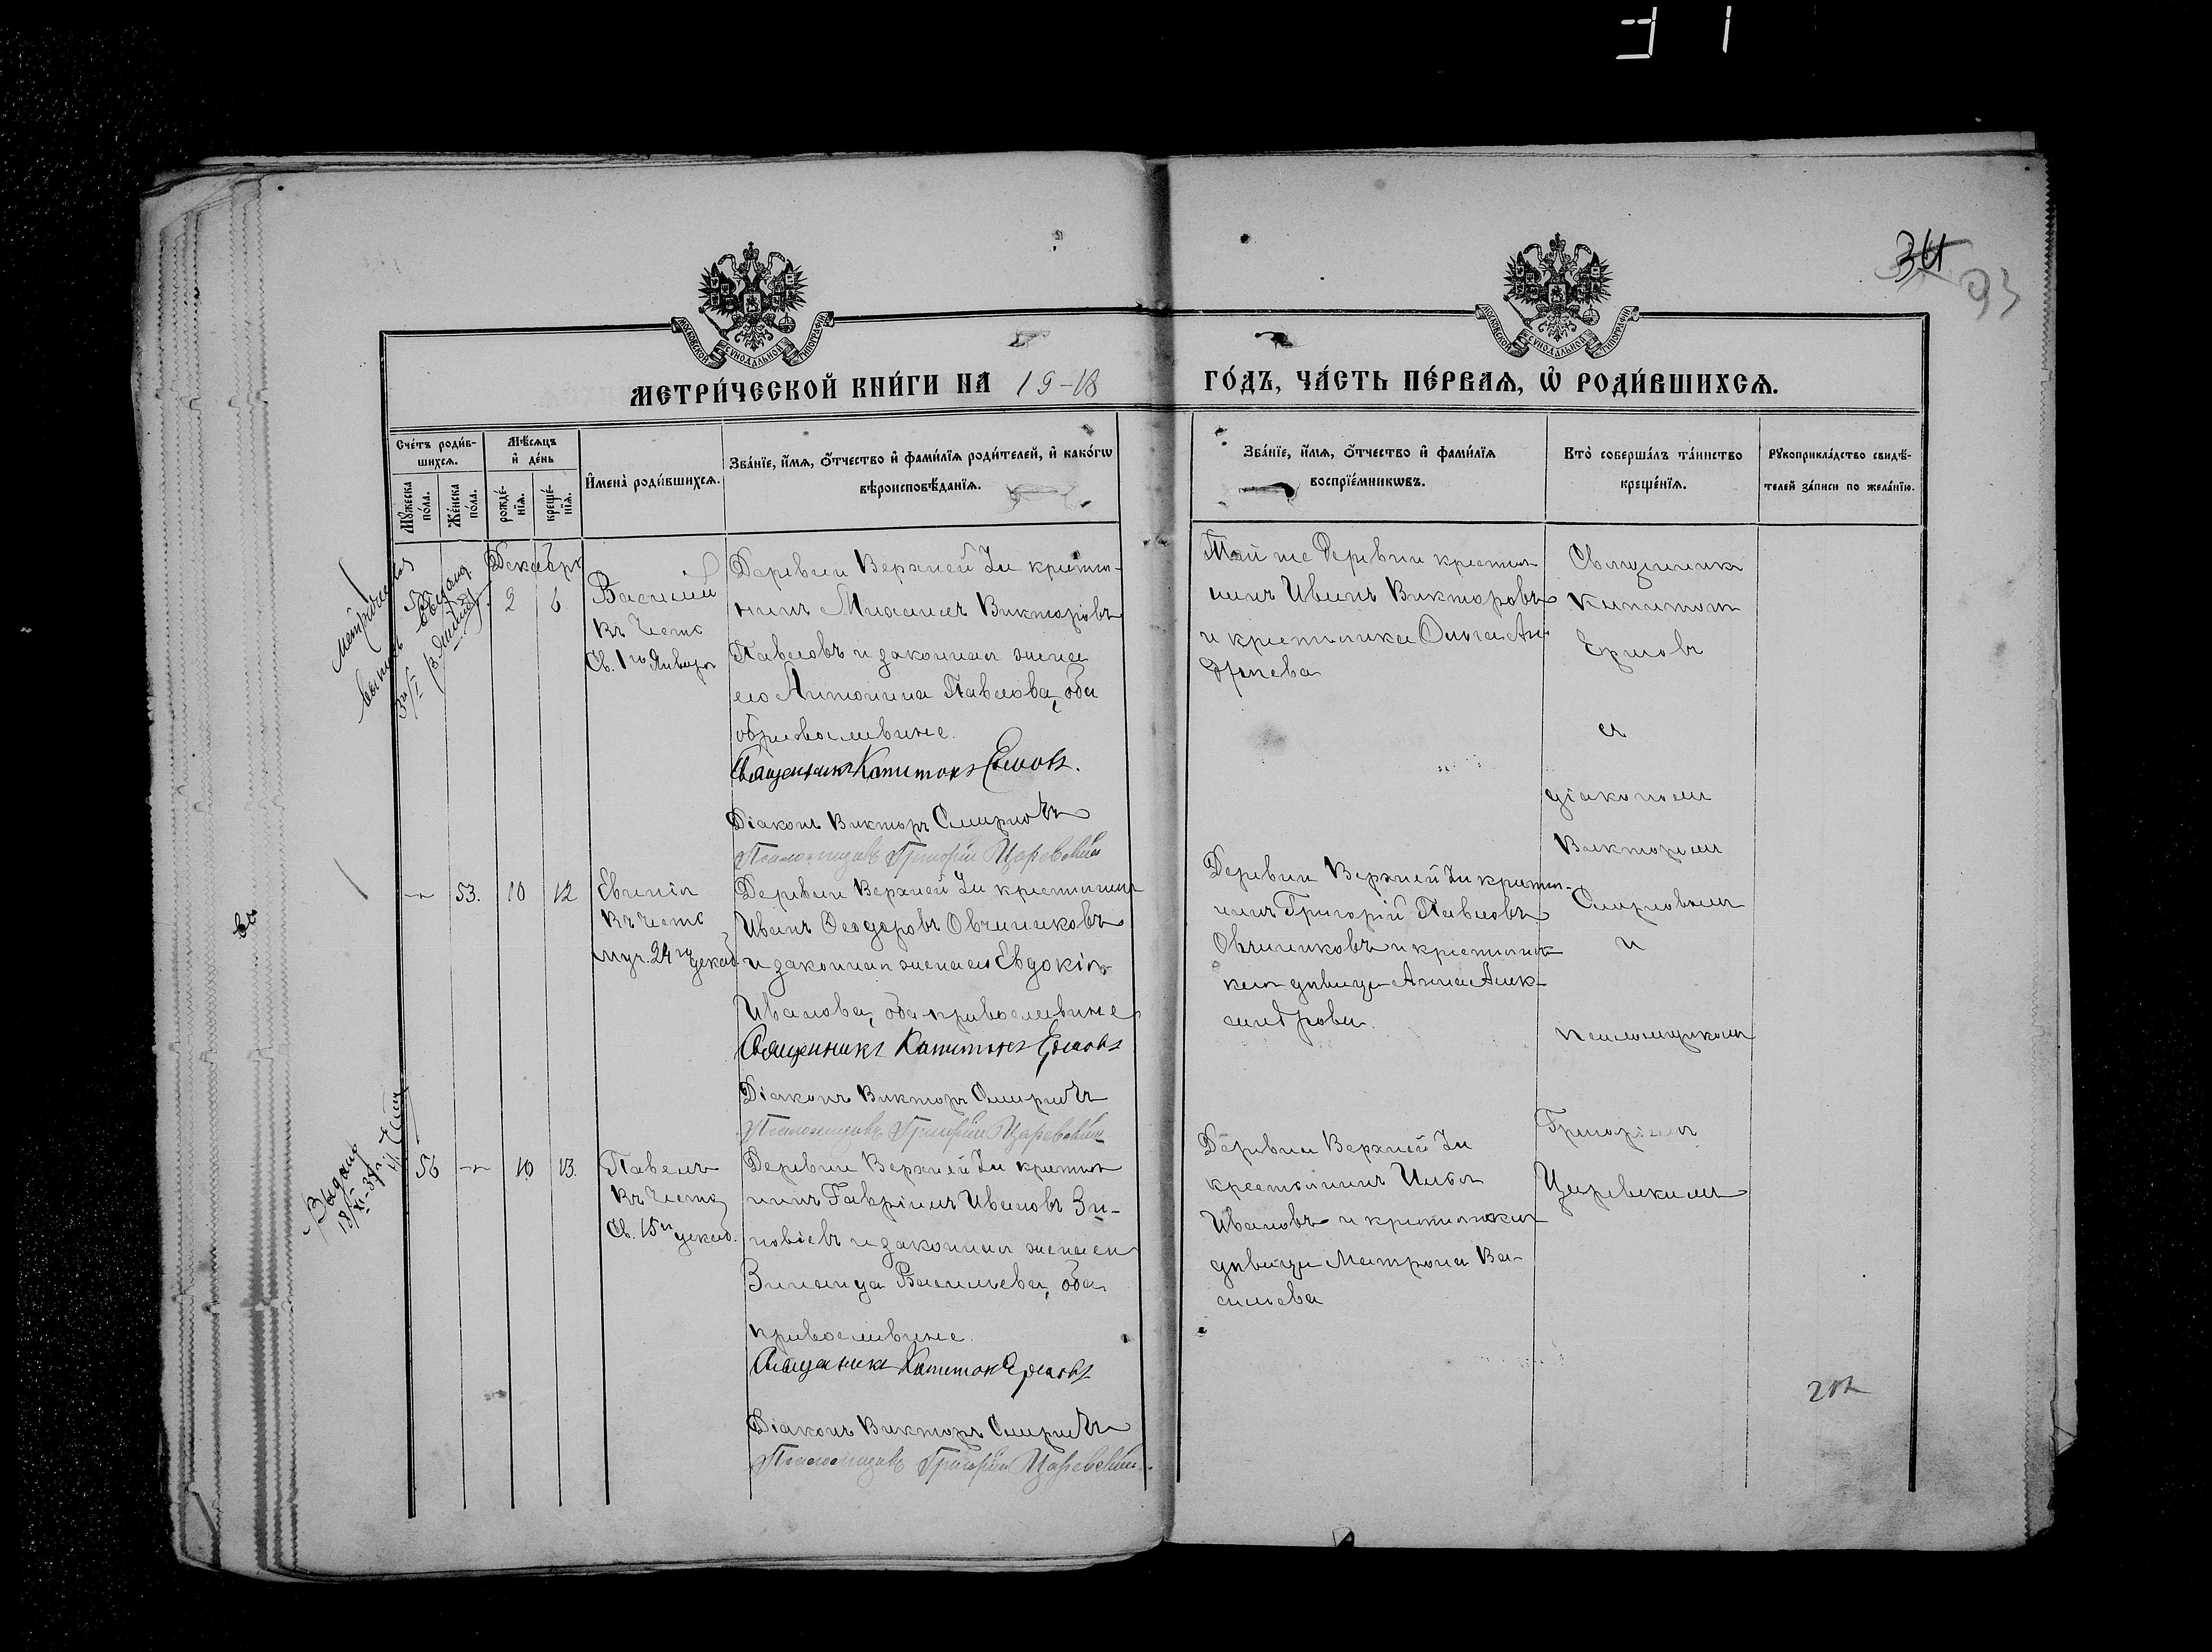 34
93
МЕТРИ́ЧЕСКОЙ КНИ́ГИ НА 19-18
ГО́ДЪ, ЧА́СТЬ ПЕ́РВАЯ, Ѿ РОДИ́ВШИХСѦ.
МОСКОВСКОЙ СѴНОДАЛЬНОЙ ТИПОГРАФІИ
МОСКОВСКОЙ СѴНОДАЛЬНОЙ ТИПОГРАФІИ
Сче́тъ роди́в-
шихсѧ.
Мꙋ́жеска по́ла.
Же́нска по́ла.
Мѣ́сѧцъ
и҆ де́нь
рожде́-
нїѧ.
креще́-
нїѧ.
И҆мена̀ роди́вшихсѧ.
Зва́нїе, и҆́мѧ, ѻ҆́тчество и҆ фами́лїѧ роди́телей, и҆ како́гѡ
вѣроисповѣ́данїѧ.
Зва́нїе, и҆́мѧ, ѻ҆́тчество и҆ фами́лїѧ
воспрїе́мникѡвъ.
Кто̀ соверша́лъ та́инство
креще́нїѧ.
Рꙋкоприкла́дство свидѣ́-
телей за́писи по жела́нїю.
Декабрь
2 6
Василій
Въ честь
Св. 1го Января
Деревни Верхней крестья-
нинъ Михаилъ Викторовъ
Павловъ и законная жена
его Антонина Павлова, оба
православные.
Священникъ Капитонъ Ершовъ.
Діаконъ Викторъ Смирновъ
Псаломщикъ Григорій Царевскій
Той же Деревни крестья-
нинъ Иванъ Викторовъ
и крестьянка Ольга Ан-
дреева
Священникъ
Капитонъ
Ершовъ
съ
діакономъ
Викторомъ
Смирновымъ
и
псаломщикомъ
Григоріемъ
Царевскимъ
53. 10 12
Евгенія
Въ честь
муч. 24го декаб.
Деревни Верхней крестьянинъ
Иванъ Ѳеодоровъ Овчинниковъ
и законная жена его Евдокія
Иванова, оба православные
Священникъ Капитонъ Ершовъ
Діаконъ Викторъ Смирновъ
Псаломщикъ Григорій Царевскій
Деревни Верхней крестья-
нинъ Григорій Павловъ
Овчинниковъ и крестьянс-
кая дѣвица Анна Алек-
сандрова.
Выдана
56 10 13.
Павелъ
Въ честь
Св. 15го декаб.
Деревни Верхней крестья
нинъ Гавріилъ Ивановъ Зи-
новіевъ и законная жена его
Зинаида Васильева, оба
православные.
Священникъ Капитонъ Ершовъ
Діаконъ Викторъ Смирновъ
Псаломщикъ Григорій Царевскій
Деревни Верхней
крестьянинъ Илья
Ивановъ и крестьянская
дѣвица Матрона Ва-
сильева